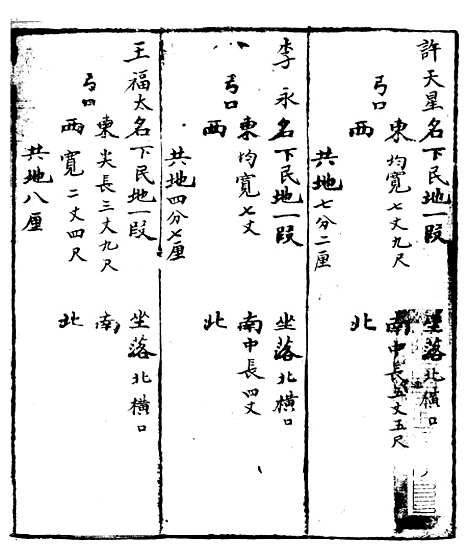 許天星名下民地一段 坐落北橫口
弓口 東均寬七丈九尺 南中長五丈五尺
西 北
共地七分二厘
李永名下民地一段 坐落北橫口
弓口 東均寬七丈 南中長四丈
西 北
共地四分七厘
王福太名下民地一段 坐落北橫口
弓口 東尖長三丈九尺 南
西寬二丈四尺 北
共地八厘